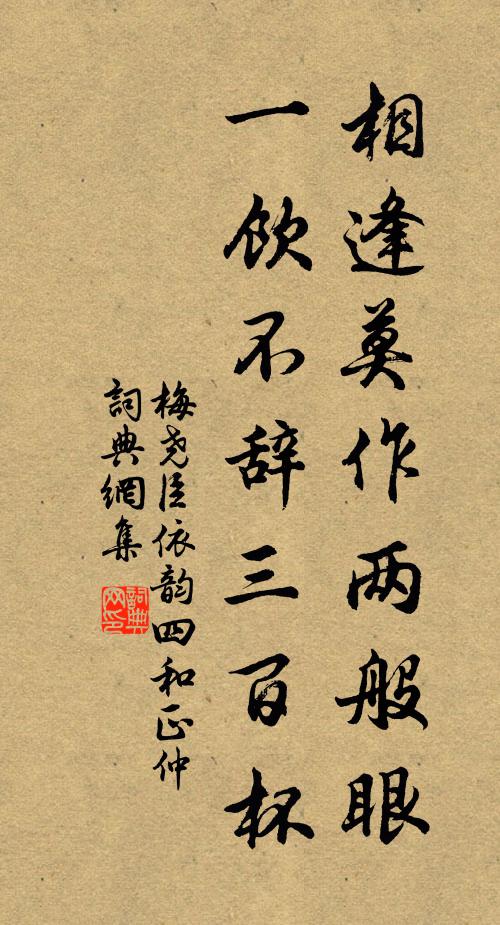 相逢莫作两般眼
一饮不辞三百杯
梅尧臣依韵四和正仲
詞典網集
詞典
网印